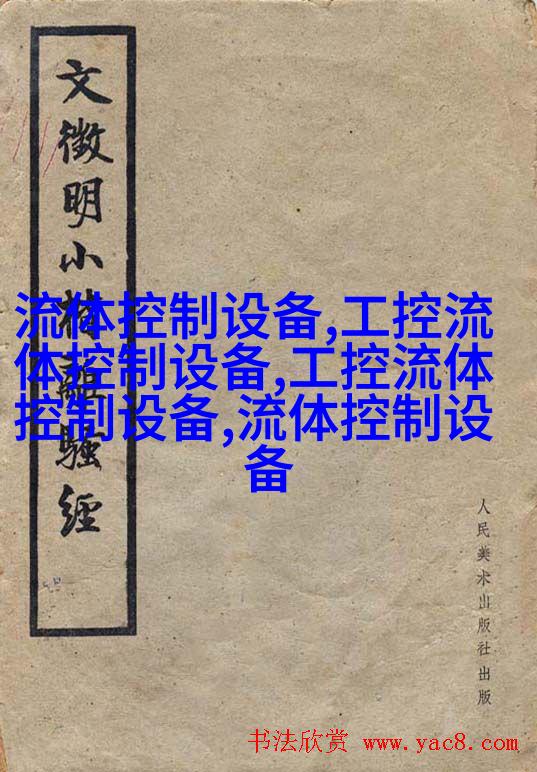 文徵明小楷離騷經
流体控制设备,工控流
体控制设备,工控流体
控制设备,流体控制设
备
人民美术出版社出版
书法欣赏 www.yac8.com